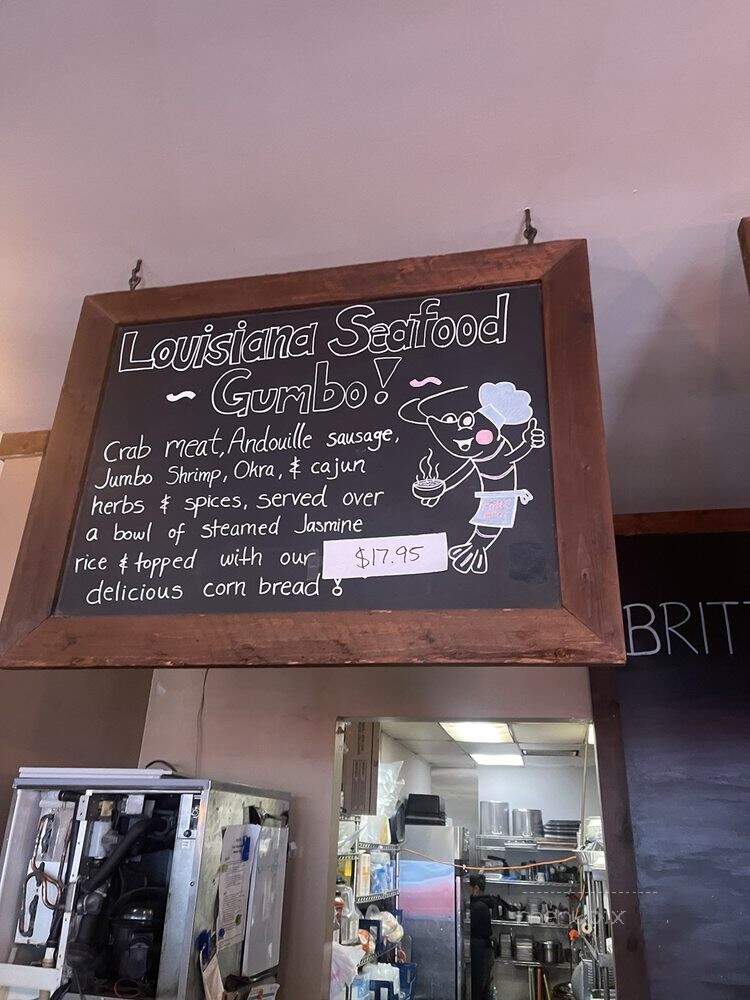 Louisiana Seafood
~ Gumbo! ~
Crab meat, Andouille sausage,
Jumbo Shrimp, Okra, & cajun
herbs & spices, served over
a bowl of steamed Jasmine
rice & topped with our $17.95
delicious corn bread!
BRIT